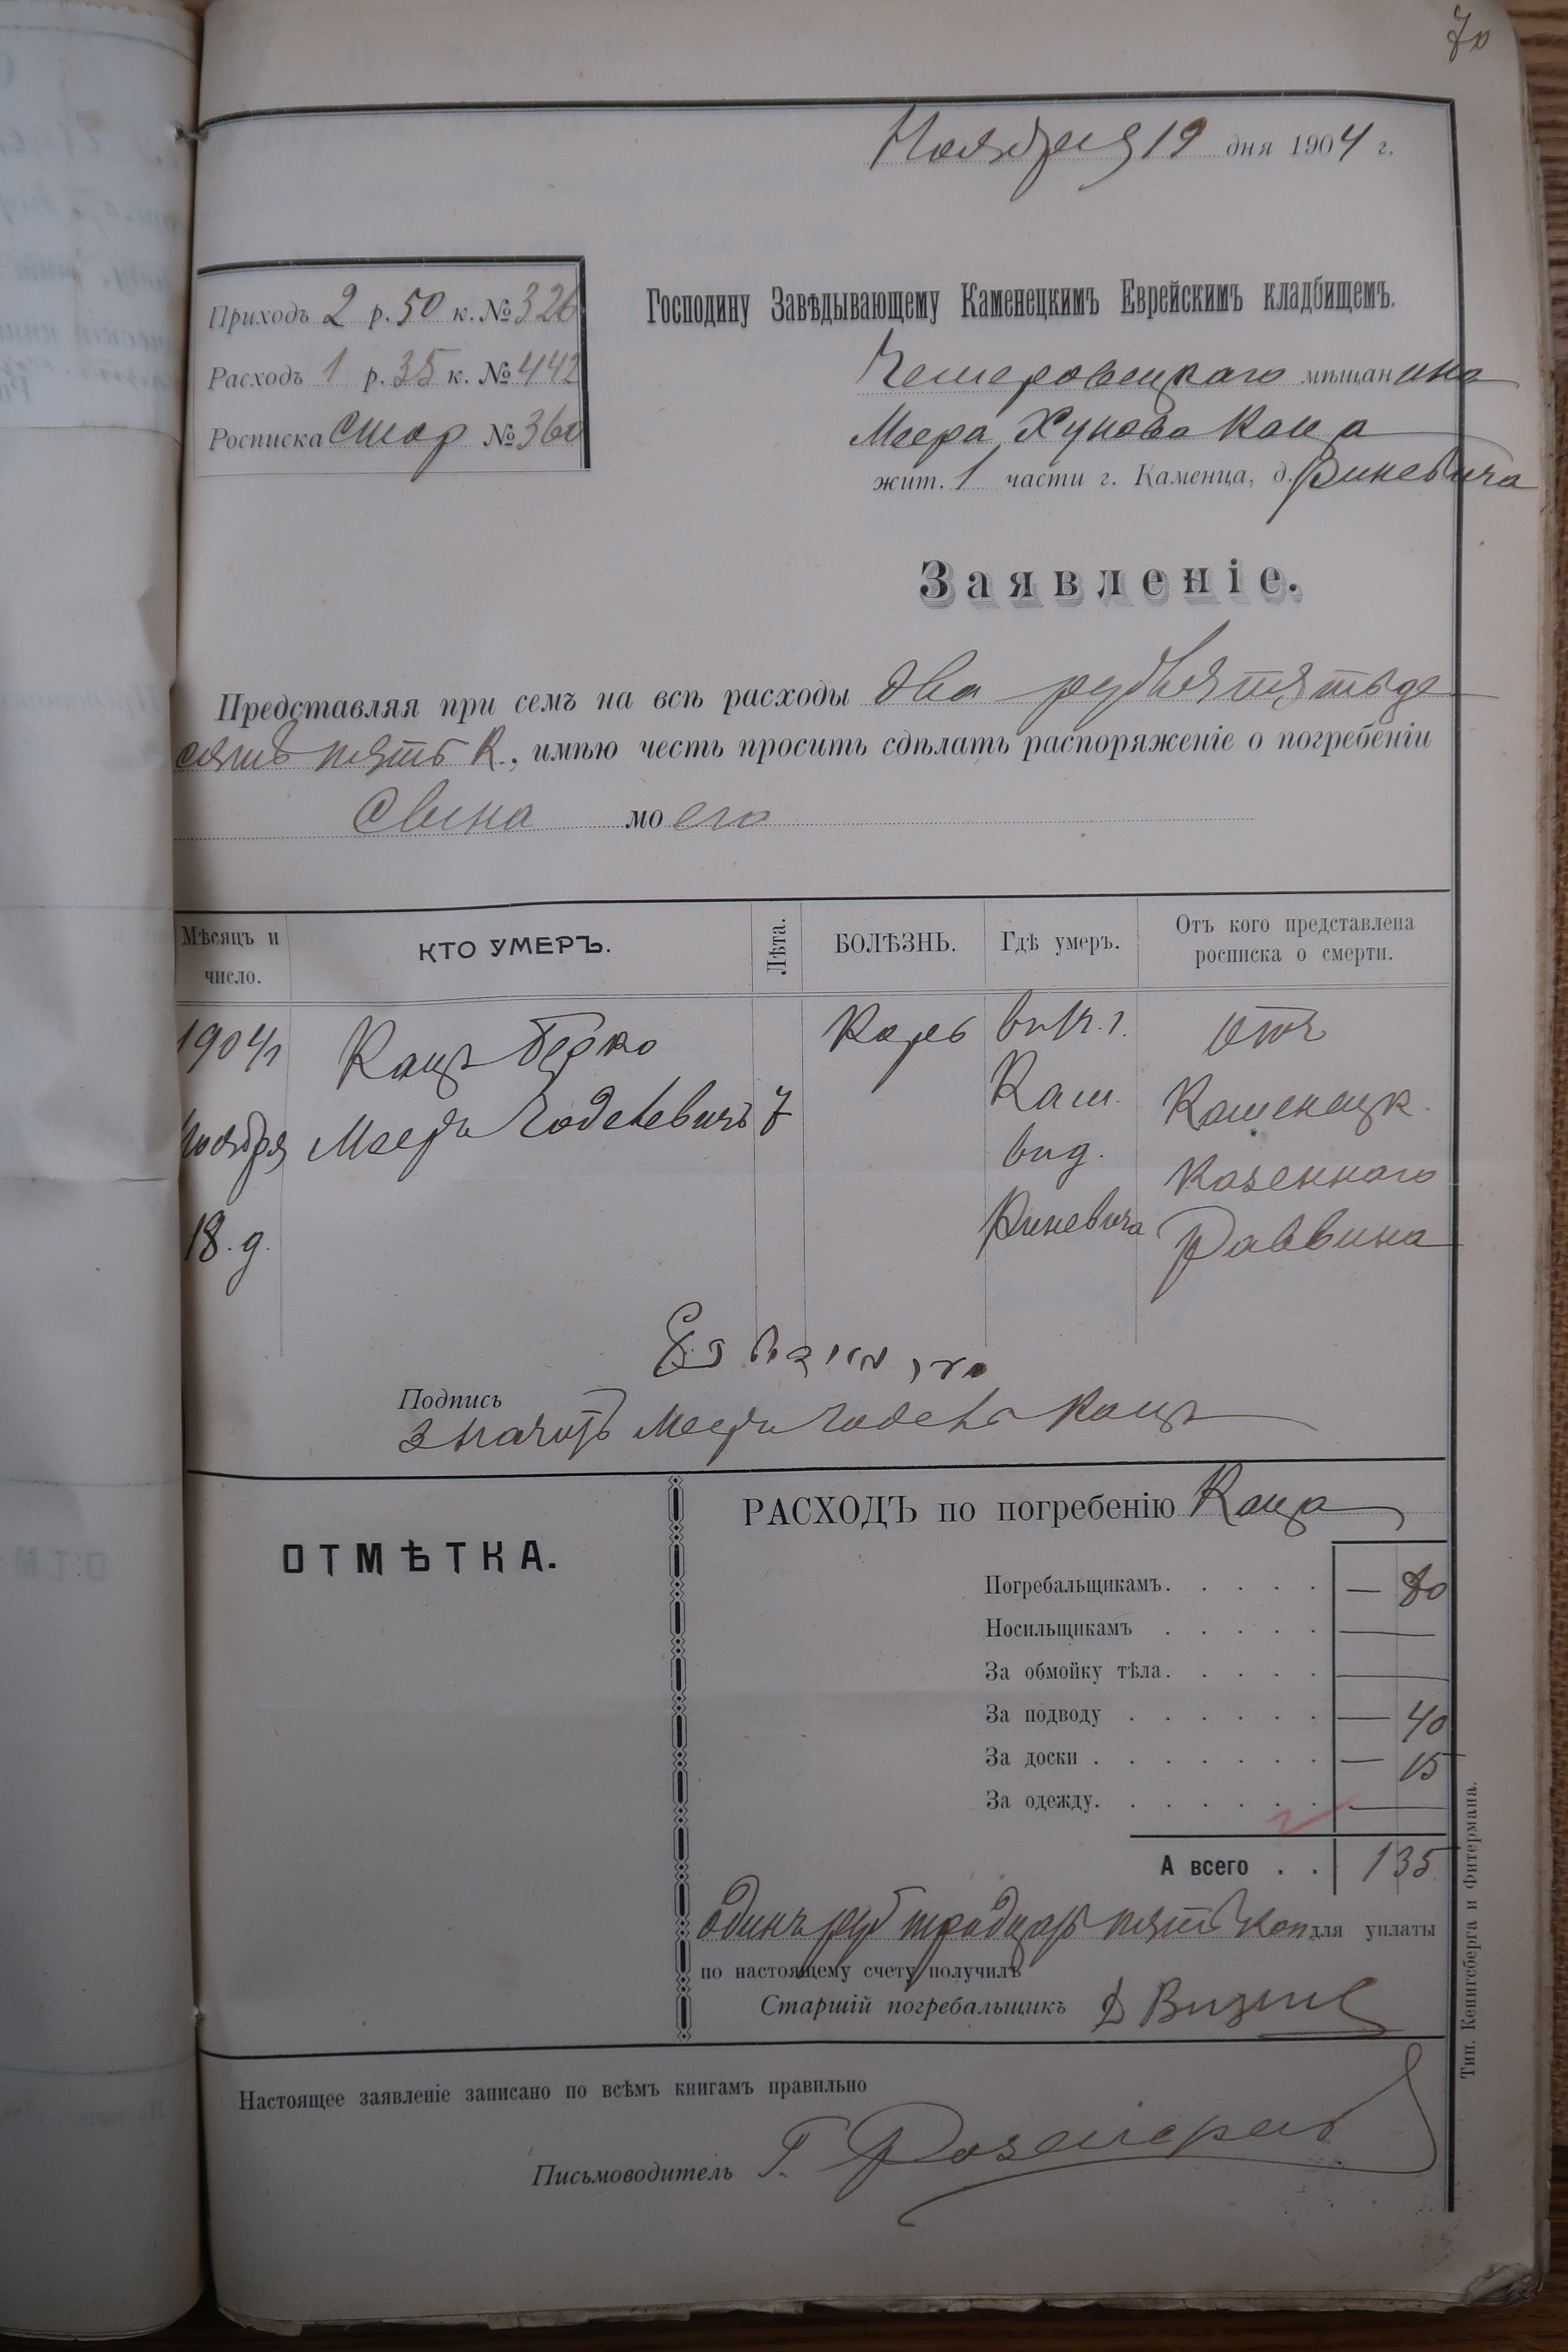 70
Ноября 19 дня 1904 г.
Приходъ 2 р. 50 к. № 326
Расходъ 1 р. 35 к. № 442
Росписка смор № 360
Господину Завѣдывающему Каменецкимъ Еврейскимъ кладбищемъ.
Чемеровецкаго мѣщанина
Меера Каца
жит. 1 части г. Каменца, д. Риневича
Заявленіе.
Представляя при семъ на всѣ расходы два рубля пятьде
сятъ пять к., имѣю честь просить сдѣлать распоряженіе о погребеніи
сына моего
Мѣсяцъ и число.
КТО УМЕРЪ.
Лѣта.
БОЛѢЗНЬ.
Гдѣ умеръ.
Отъ кого представлена росписка о смерти.
1904 г
Ноября
18. д.
Кацъ Берко
Мееръ Годелевичъ
7
Корь
Кам.
в д.
Риневича
отъ
Каменецк.
Казеннаго
Раввина
Подпись
значитъ Мееръ Годель Кацъ
ОТМѢТКА.
РАСХОДЪ по погребенію Каца
Погребальщикамъ. — 80
Носильщикамъ —
За обмойку тѣла. —
За подводу — 40
За доски — 15
За одежду. —
А всего . . 1 35
одинъ руб тридцать пять коп для уплаты
по настоящему счету получилъ
Старшій погребальщикъ
Настоящее заявленіе записано по всѣмъ книгамъ правильно
Письмоводитель Г.
Тип. Кенигсберга и Фитермана.